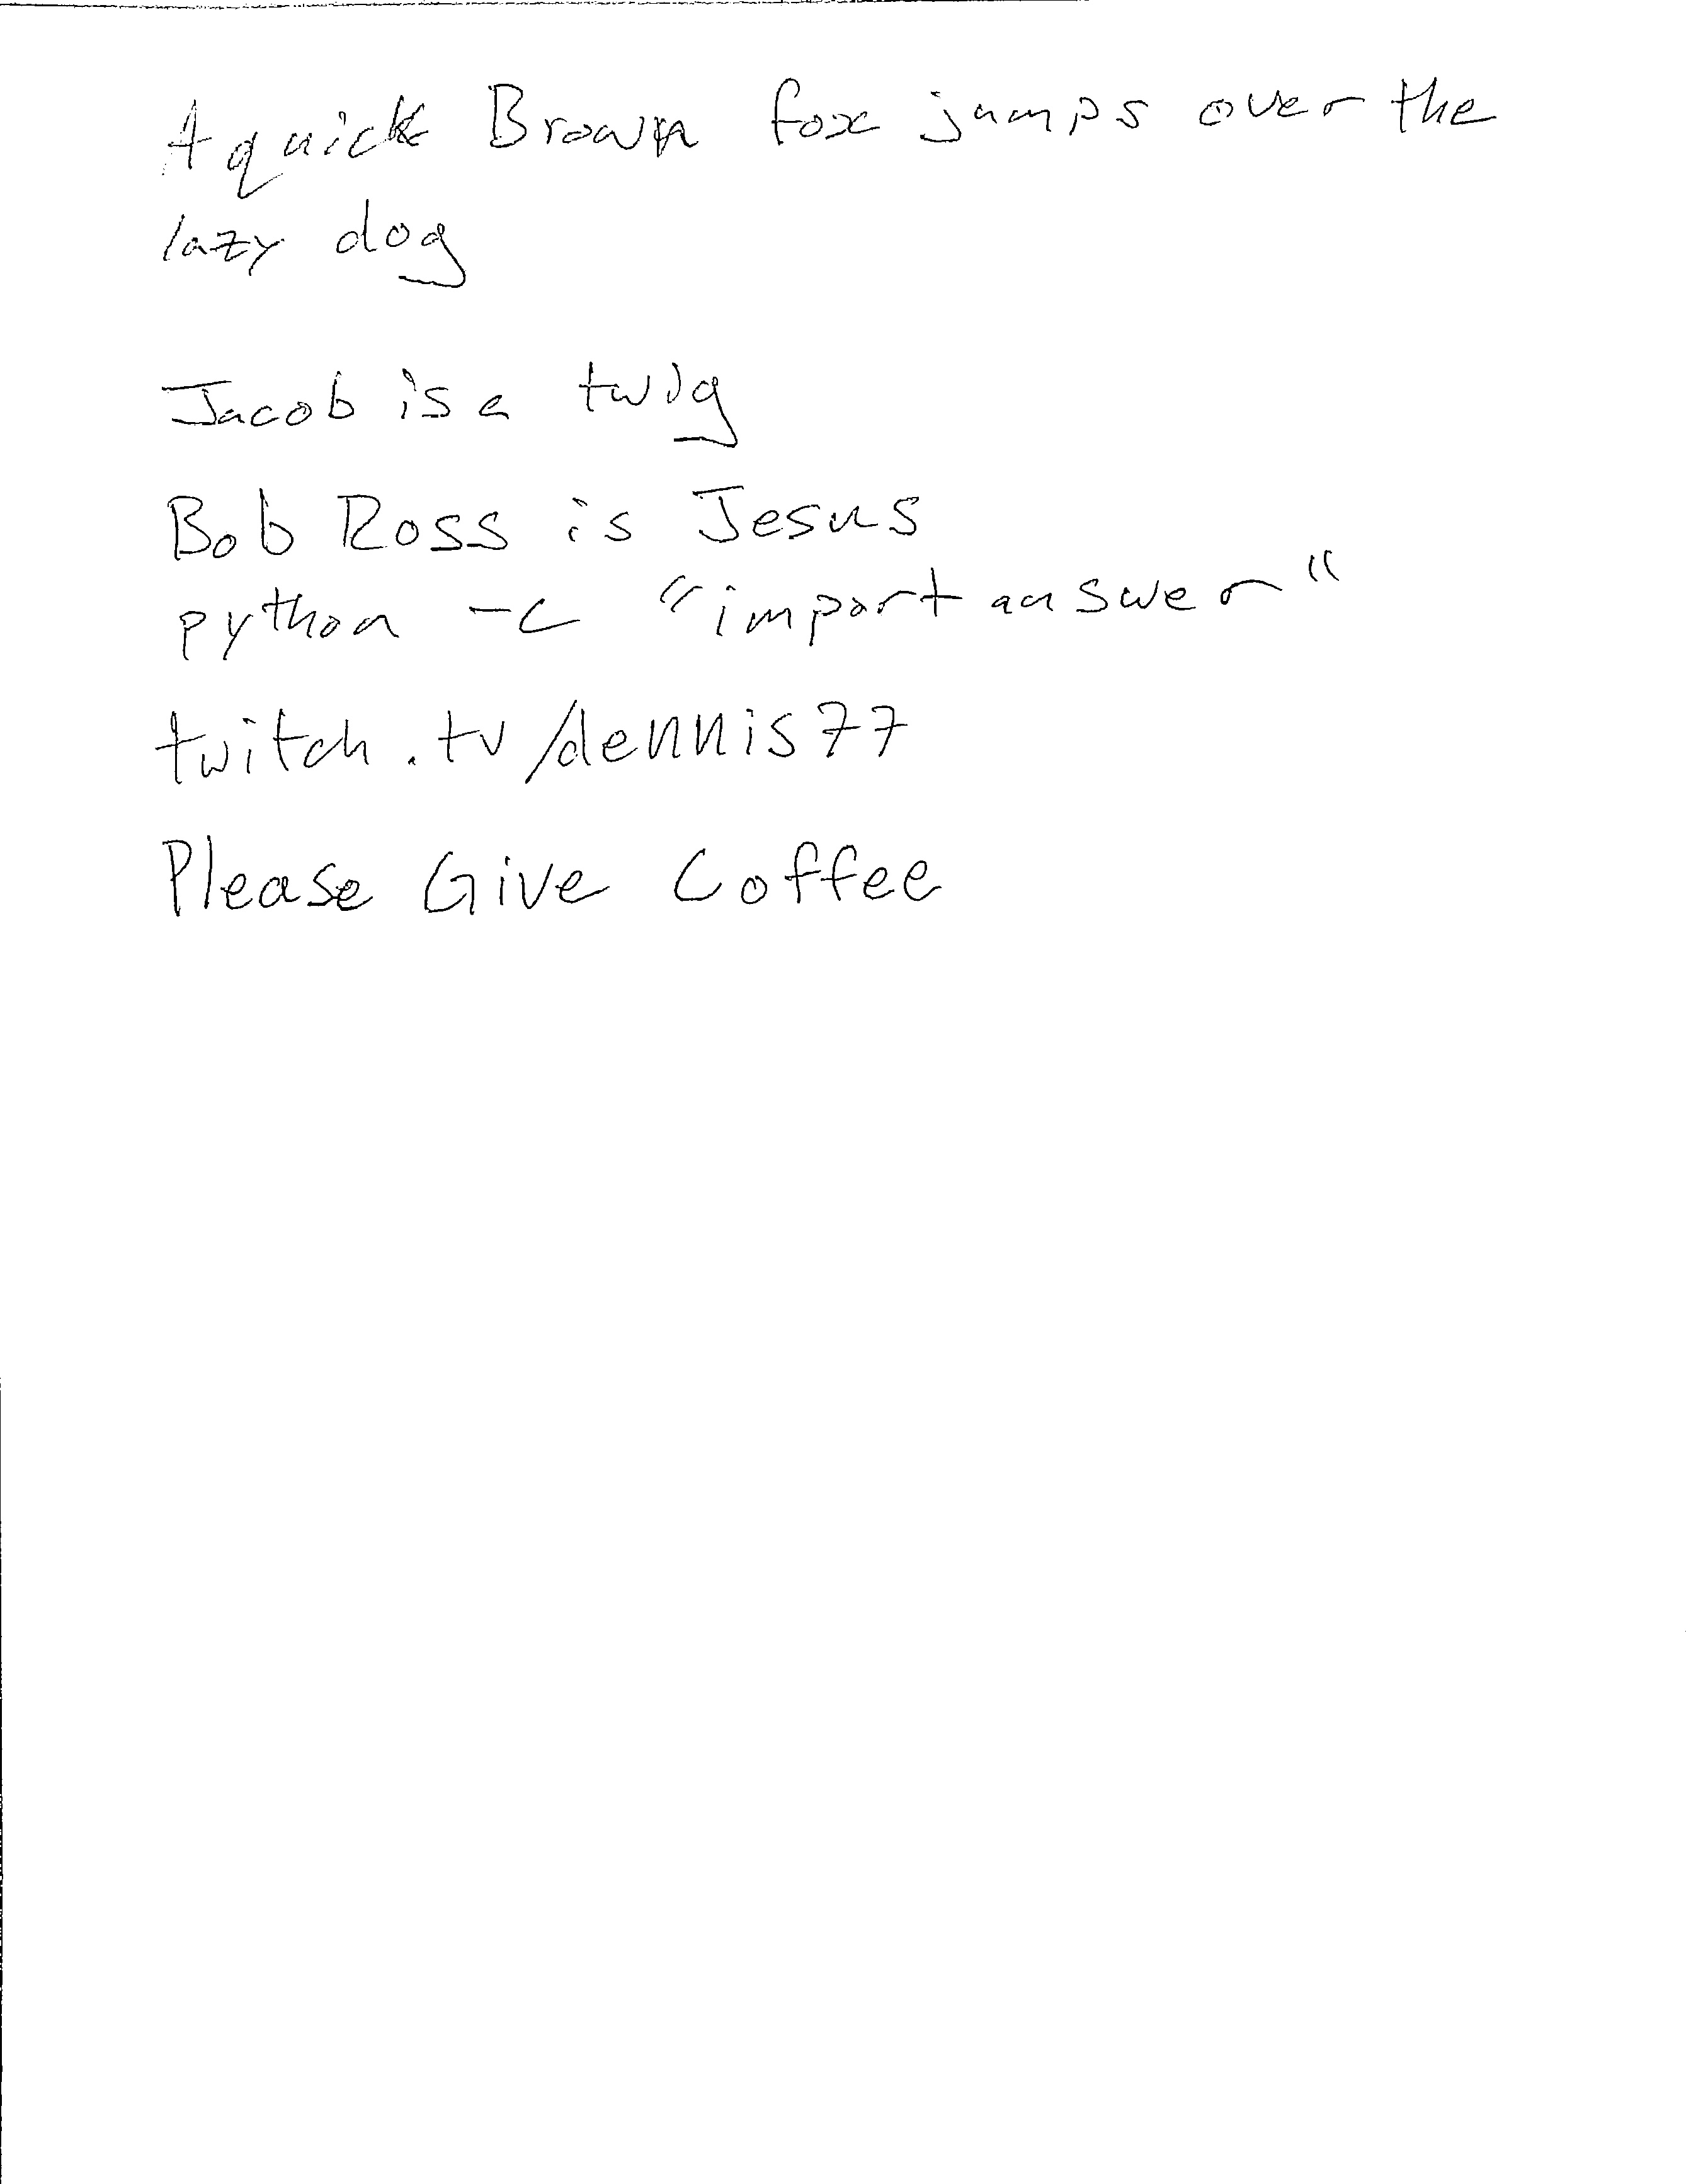 A quick Brown fox jumps over the
lazy dog
Jacob is a twig
Bob Ross is Jesus
python -c "import answer"
twitch.tv/dennis77
Please Give Coffee